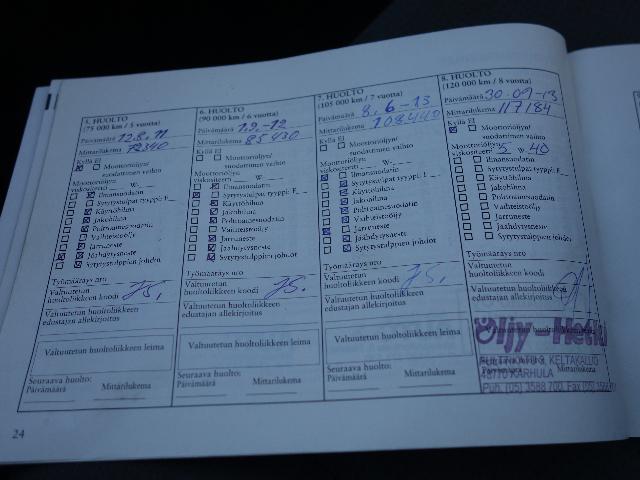 5. HUOLTO
(75 000 km / 5 vuotta)
Päivämäärä 12.8.11
Mittarilukema 72340
Kyllä Ei
Moottoriöljyn/
suodattimen vaihto
Moottoriöljyn
viskositeetti W-
Ilmansuodatin
Sytytystulpat tyyppi: F
Käyttöhihna
Jakohihna
Polttoainesuodatin
Vaihteistoöljy
Jarruneste
Jäähdytysneste
Sytytystulppien johdot
Työmääräys nro
Valtuutetun
huoltoliikkeen koodi
Valtuutetun huoltoliikkeen
edustajan allekirjoitus
Valtuutetun huoltoliikkeen leima
Seuraava huolto:
Päivämäärä Mittarilukema
6. HUOLTO
(90 000 km / 6 vuotta)
Päivämäärä 1.9.-12
Mittarilukema 85430
Kyllä Ei
Moottoriöljyn/
suodattimen vaihto
Moottoriöljyn
viskositeetti W-
Ilmansuodatin
Sytytystulpat tyyppi: F
Käyttöhihna
Jakohihna
Polttoainesuodatin
Vaihteistoöljy
Jarruneste
Jäähdytysneste
Sytytystulppien johdot
Työmääräys nro
Valtuutetun
huoltoliikkeen koodi
Valtuutetun huoltoliikkeen
edustajan allekirjoitus
Valtuutetun huoltoliikkeen leima
Seuraava huolto:
Päivämäärä Mittarilukema
7. HUOLTO
(105 000 km / 7 vuotta)
Päivämäärä 8.6-13
Mittarilukema 108440
Kyllä Ei
Moottoriöljyn/
suodattimen vaihto
Moottoriöljyn
viskositeetti W-
Ilmansuodatin
Sytytystulpat tyyppi: F
Käyttöhihna
Jakohihna
Polttoainesuodatin
Vaihteistoöljy
Jarruneste
Jäähdytysneste
Sytytystulppien johdot
Työmääräys nro
Valtuutetun
huoltoliikkeen koodi
Valtuutetun huoltoliikkeen
edustajan allekirjoitus
Valtuutetun huoltoliikkeen leima
Seuraava huolto:
Päivämäärä Mittarilukema
8. HUOLTO
(120 000 km / 8 vuotta)
Päivämäärä 30-09-13
Mittarilukema 117184
Kyllä Ei
Moottoriöljyn/
suodattimen vaihto
Moottoriöljyn
viskositeetti 5 W 40
Ilmansuodatin
Sytytystulpat tyyppi: F
Käyttöhihna
Jakohihna
Polttoainesuodatin
Vaihteistoöljy
Jarruneste
Jäähdytysneste
Sytytystulppien johdot
Työmääräys nro
Valtuutetun
huoltoliikkeen koodi
Valtuutetun huoltoliikkeen
edustajan allekirjoitus
Öljy-
KELTAKALLIO
48770 KARHULA
Puh. (05) 3588 700, Fax (05)
Päivämäärä Mittarilukema
24